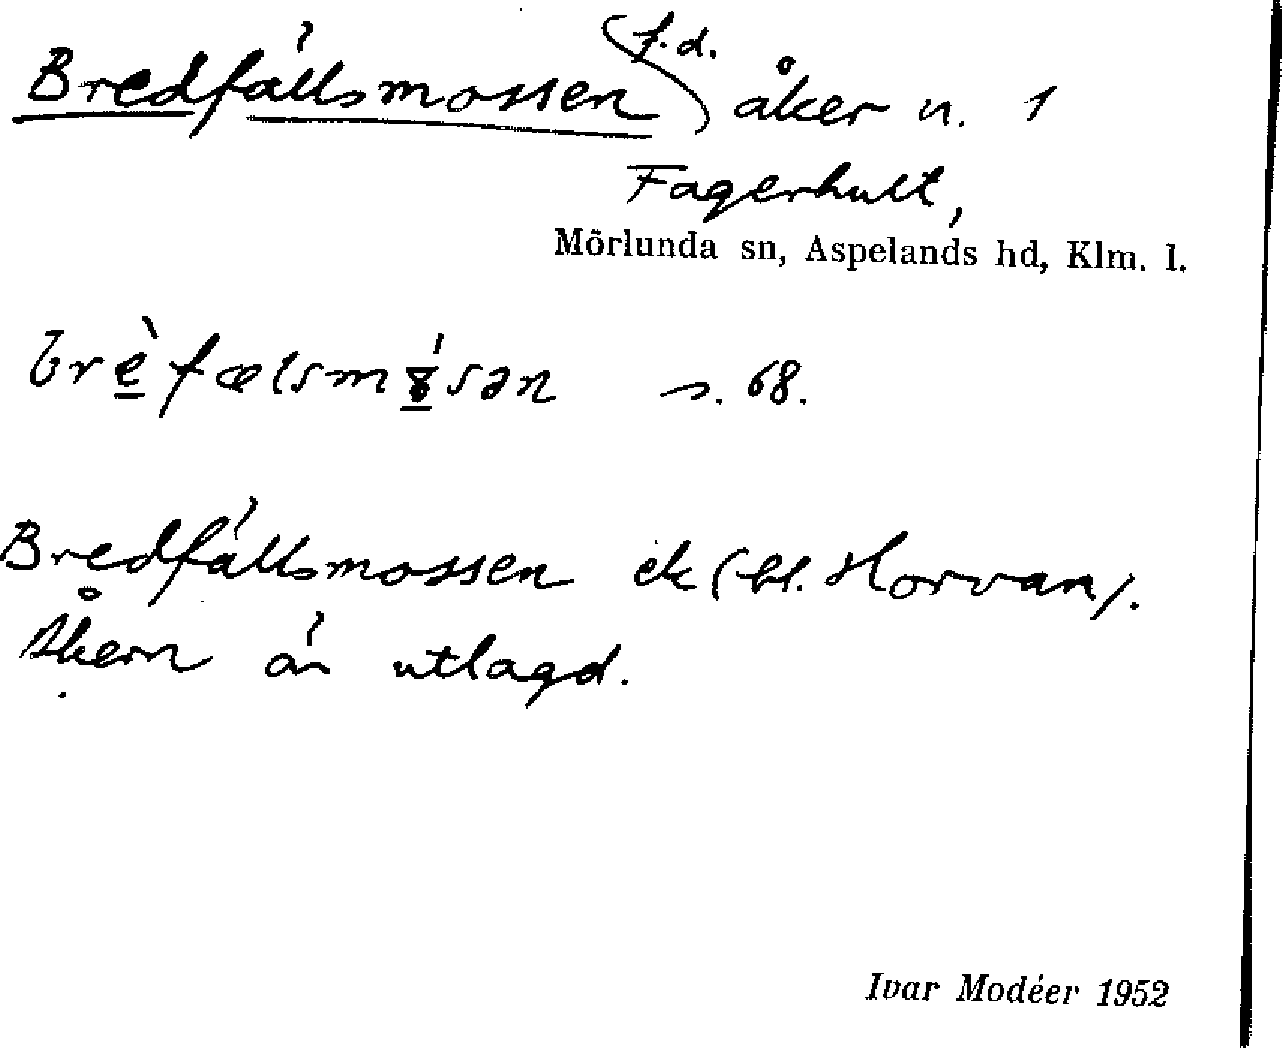 Bredfällsmossen f.d. åker n. 1
Fagerhult,
Mörlunda sn, Aspelands hd, Klm. l.
brèfælsmɤ́sən s. 68.
Bredfällsmossen ek (bl. Horvan).
Åkern är utlagd.
Ivar Modéer 1952